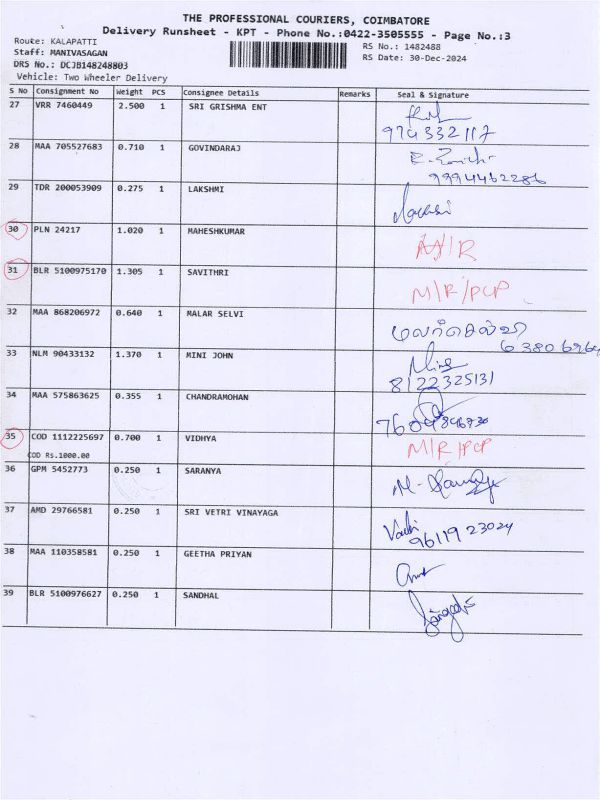 THE PROFESSIONAL COURIERS, COIMBATORE
Delivery Runsheet - KPT - Phone No.:0422-3505555 - Page No.:3
Route: KALAPATTI
RS No.: 1482488
Staff: MANIVASAGAN
RS Date: 30-Dec-2024
DRS No.: DCJB148248803
Vehicle: Two Wheeler Delivery
S No Consignment No Weight PCS Consignee Details Remarks Seal & Signature
27 VRR 7460449 2.500 1 SRI GRISHMA ENT
974332117
28 MAA 705527683 0.710 1 GOVINDARAJ
9994462286
29 TDR 200053909 0.275 1 LAKSHMI
30 PLN 24217 1.020 1 MAHESHKUMAR
31 BLR 5100975170 1.305 1 SAVITHRI M/R/PCP
32 MAA 868206972 0.640 1 MALAR SELVI மலர்செல்வி
33 NLM 90433132 1.370 1 MINI JOHN
8122325131
34 MAA 575863625 0.355 1 CHANDRAMOHAN
35 COD 1112225697 0.700 1 VIDHYA M/R/PCP
COD Rs.1000.00
36 GPM 5452773 0.250 1 SARANYA
37 AMD 29766581 0.250 1 SRI VETRI VINAYAGA
9611923024
38 MAA 110358581 0.250 1 GEETHA PRIYAN
39 BLR 5100976627 0.250 1 SANDHAL